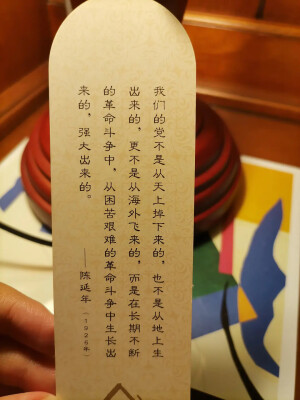 我们的党不是从天上掉下来的，也不是从地上生
出来的，更不是从海外飞来的，而是在长期不断
的革命斗争中，从困苦艰难的革命斗争中生长出
来的，强大出来的。
——陈延年（1925年）